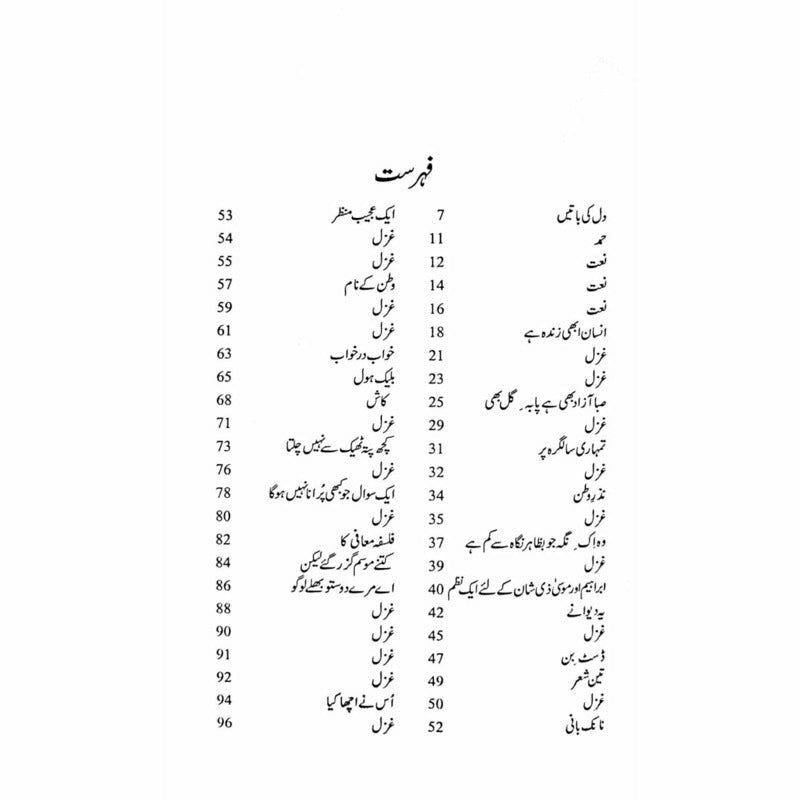 فہرست
دل کی باتیں 7
حمد 11
نعت 12
نعت 14
نعت 16
انسان ابھی زندہ ہے 18
غزل 21
غزل 23
صبا آزاد بھی ہے پا بہ گل بھی 25
غزل 29
تمہاری سالگرہ پر 31
غزل 32
نذرِ وطن 34
غزل 35
وہ اِک نگہ جو بظاہر نگاہ سے کم ہے 37
غزل 39
ابراہیم اور موسیٰ ذی شان کے لئے ایک نظم 40
یہ دیوانے 42
غزل 45
ڈسٹ بن 47
تین شعر 49
غزل 50
نانک بانی 52
ایک عجیب منظر 53
غزل 54
غزل 55
وطن کے نام 57
غزل 59
غزل 61
خواب در خواب 63
بلیک ہول 65
کاش 68
غزل 71
کچھ پتہ ٹھیک سے نہیں چلتا 73
غزل 76
ایک سوال جو کبھی پُرانا نہیں ہوگا 78
غزل 80
فلسفہ معافی کا 82
کتنے موسم گزر گئے لیکن 84
اے مرے دوستو بھلے لوگو 86
غزل 88
غزل 90
غزل 91
غزل 92
اُس نے اچھا کیا 94
غزل 96